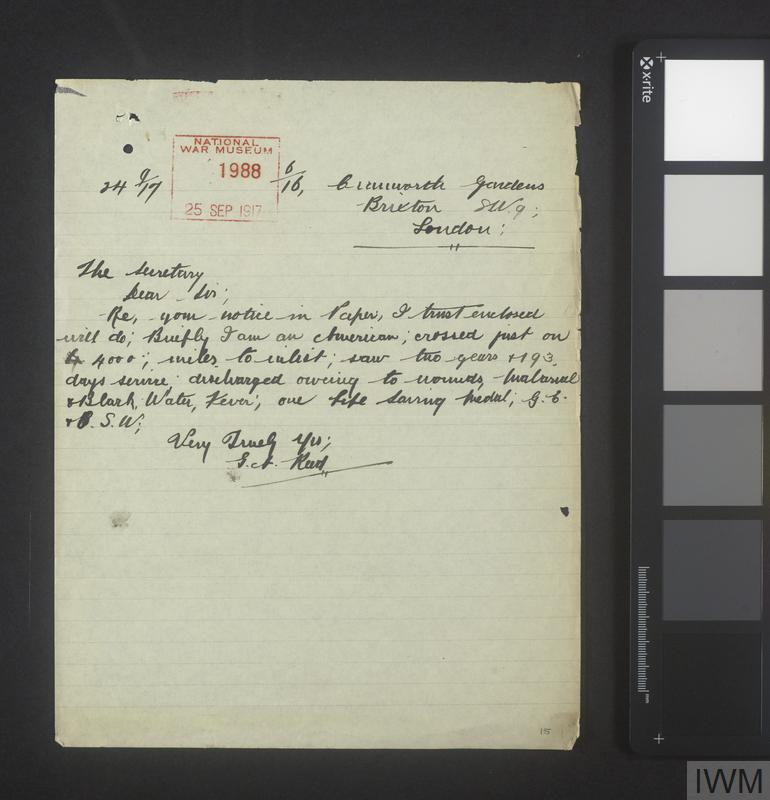 NATIONAL
WAR MUSEUM
1988
25 SEP 1917
24 9/17
6/16, Gardens
Brixton SW.9;
London;
The Secretary
Dear Sir;
Re, your notice in Paper, I trust enclosed
will do; Briefly I am an American; crossed just on
4000; miles to inlist; saw two years & 193
days service; discharged owing to wounds, Malarial
& Black, Water, Fever; one Life Saving Medal; G.C.
& B. S. W;
Very Truely Yrs;
G.A. Reed
15
x-rite
mm
IWM